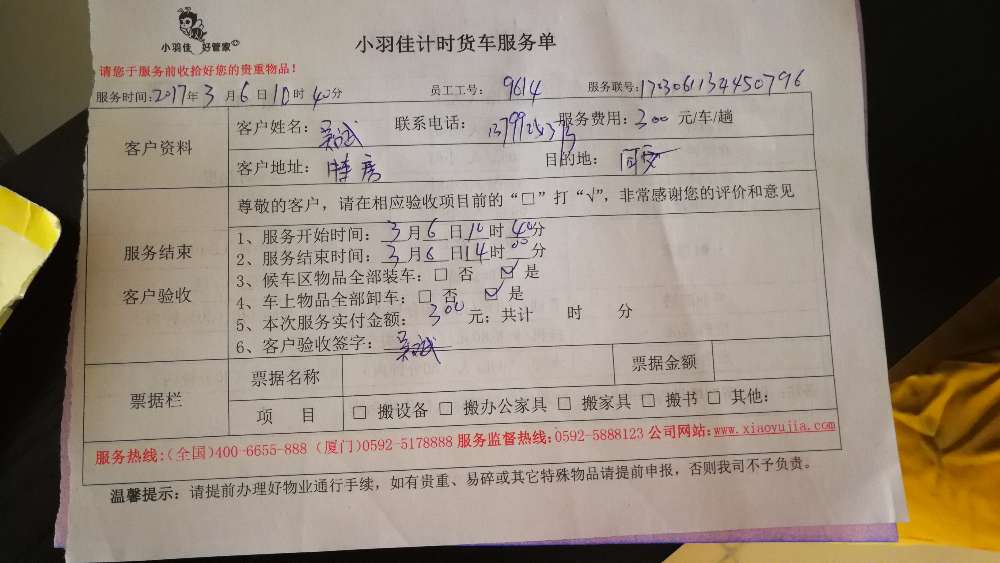 小羽佳 好管家
小羽佳计时货车服务单
请您于服务前收拾好您的贵重物品！
服务时间：2017年3月6日10时40分 员工工号：9614 服务联号：1703061134450796
客户资料
客户姓名：吴斌 联系电话： 服务费用：300元/车/趟
客户地址：特房 目的地：同安
服务结束
客户验收
尊敬的客户，请在相应验收项目前的“□”打“√”，非常感谢您的评价和意见
1、服务开始时间：3月6日10时40分
2、服务结束时间：3月6日14时00分
3、候车区物品全部装车：□ 否 ☑ 是
4、车上物品全部卸车：□ 否 ☑ 是
5、本次服务实付金额：300元；共计 时 分
6、客户验收签字：吴斌
票据栏
票据名称 票据金额
项 目 □ 搬设备 □ 搬办公家具 □ 搬家具 □ 搬书 □ 其他：
服务热线：（全国）400-6655-888（厦门）0592-5178888 服务监督热线：0592-5888123 公司网站：www.xiaoyujia.com
温馨提示：请提前办理好物业通行手续，如有贵重、易碎或其它特殊物品请提前申报，否则我司不予负责。